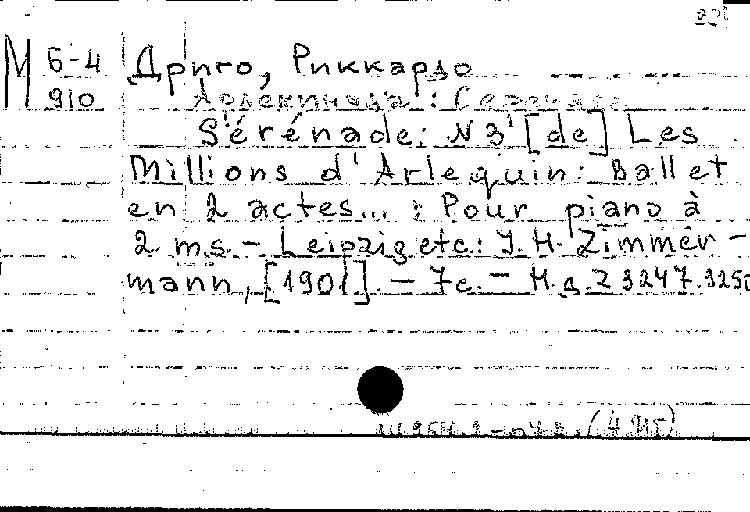 М Б-4 Дриго, Риккардо
910 Арлекинада: Серенада
Sérénade: N 3 [de] Les
Millions d'Arlequin: Ballet
en 2 actes... : Pour piano à
2 ms. – Leipzig etc: J. H. Zimmer-
mann, [1901]. – 7с. – Н.д. Z 3247. 3250